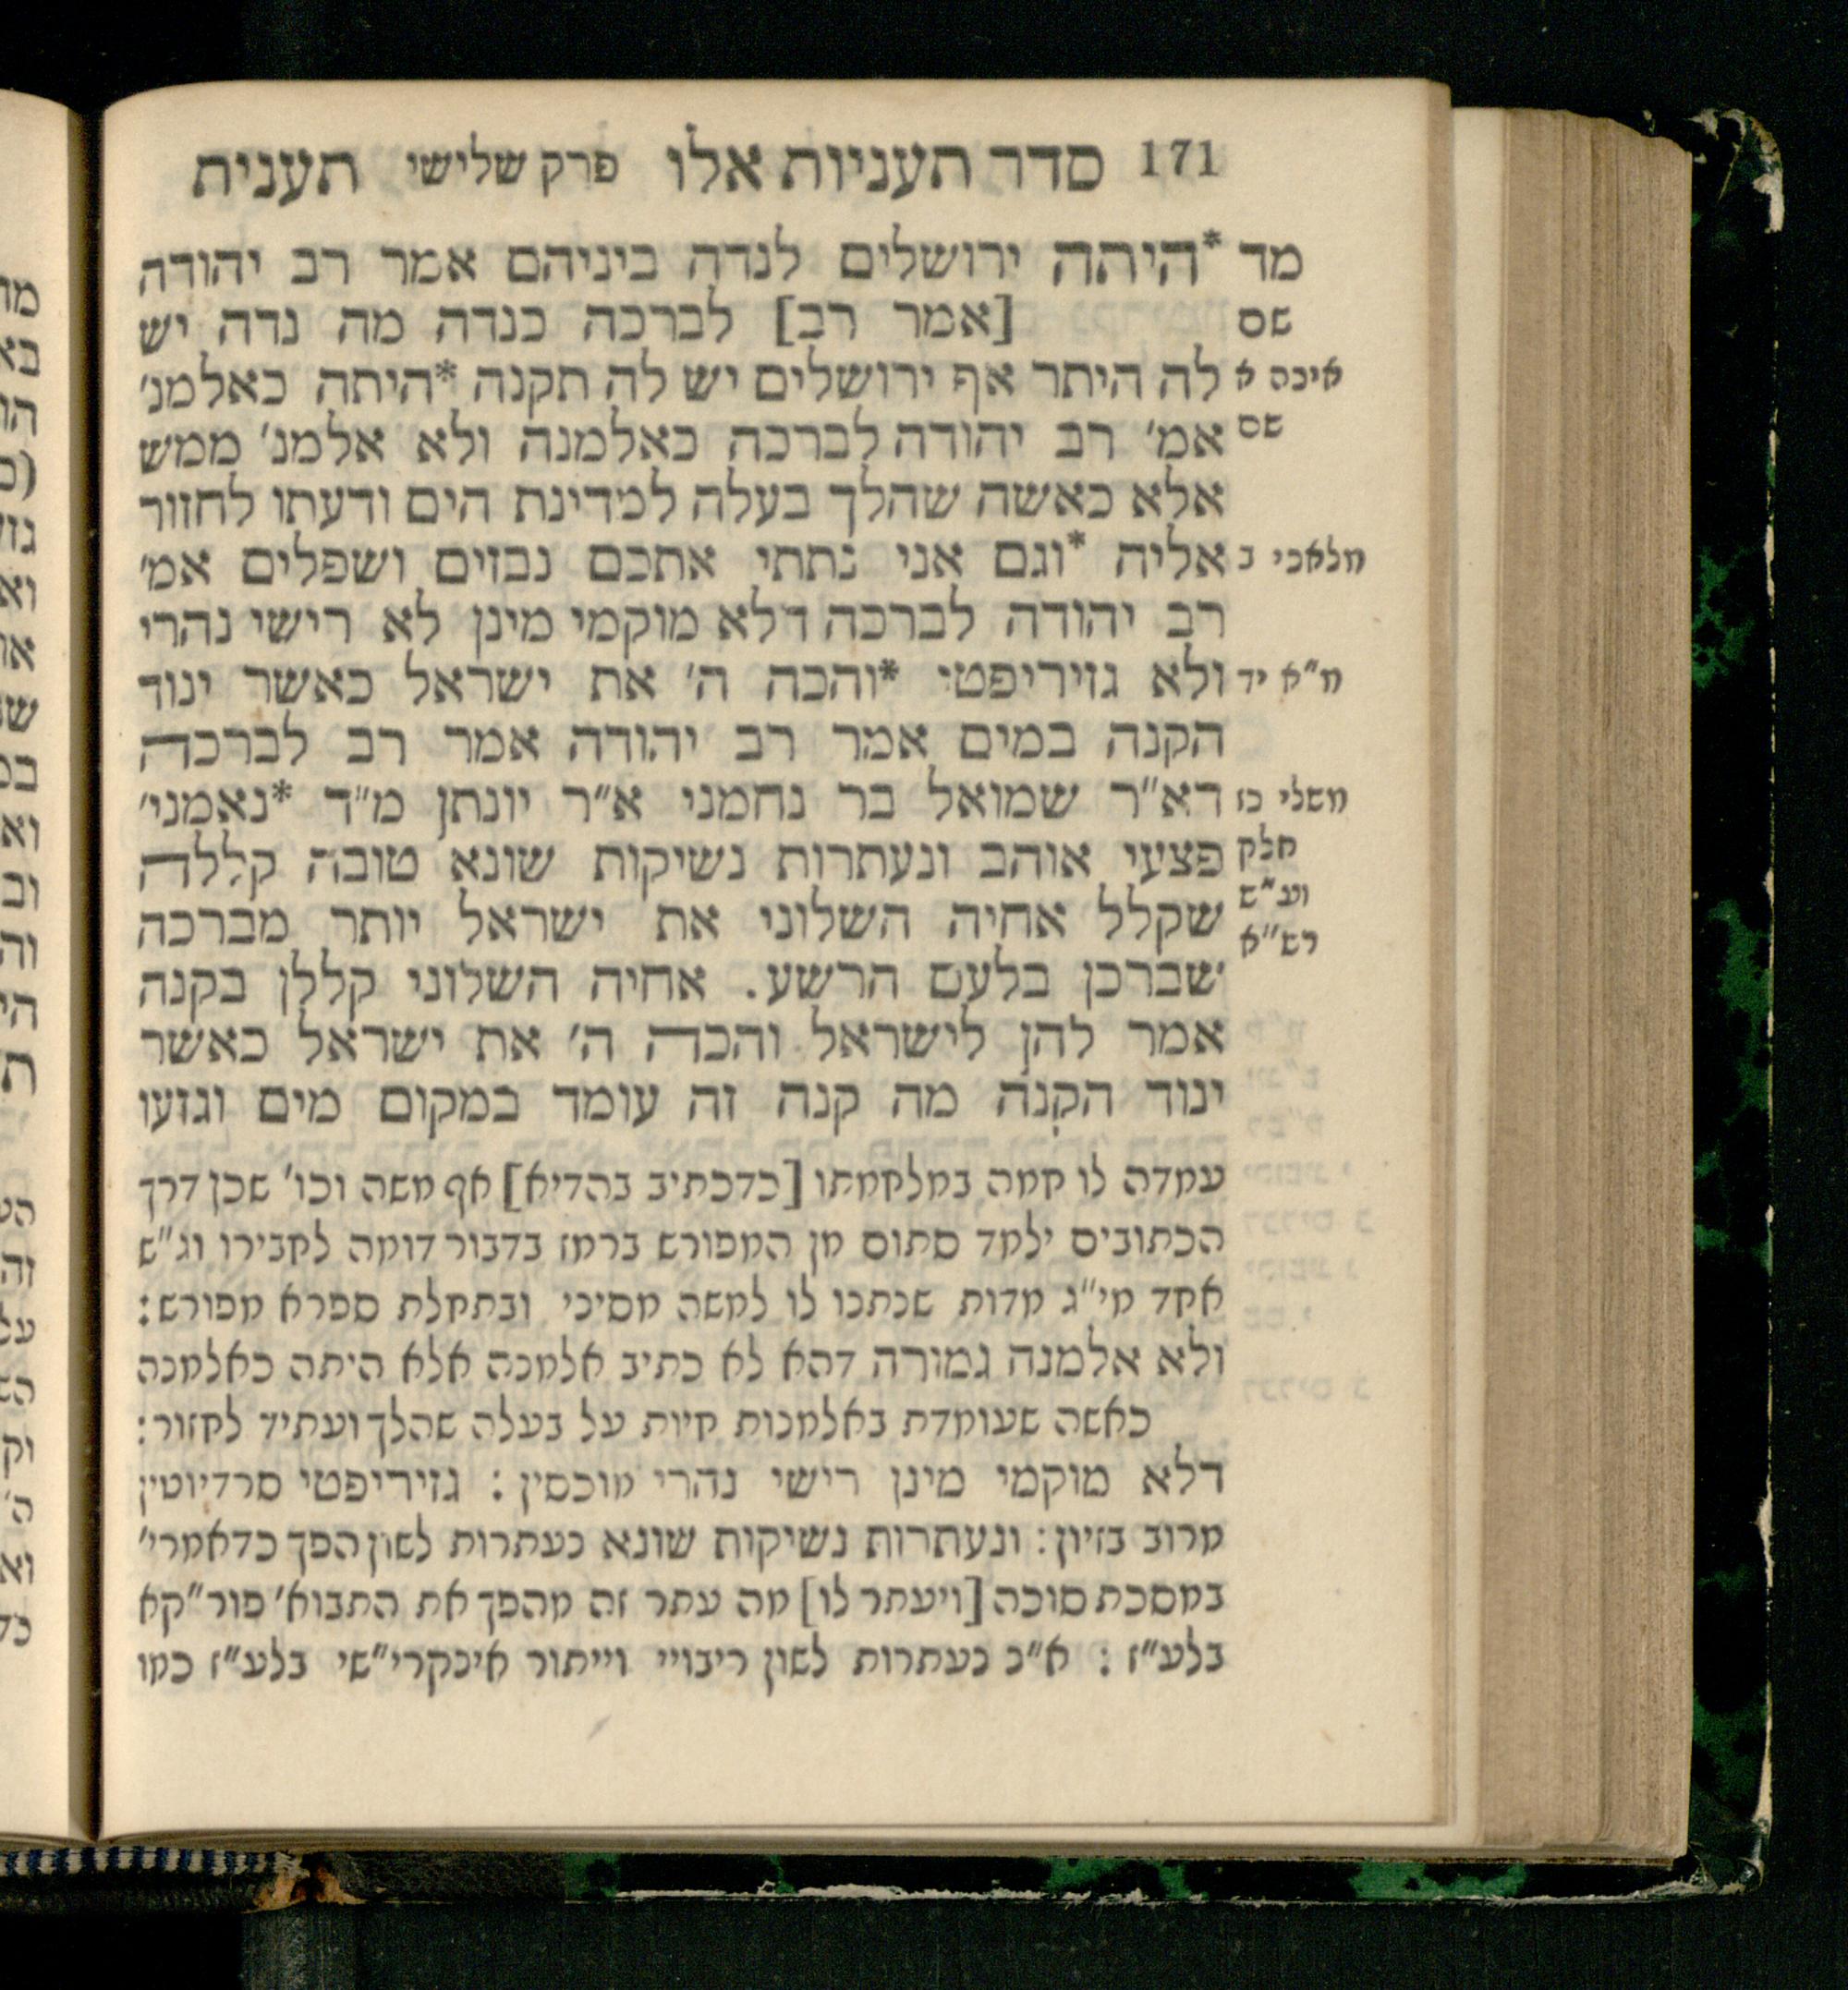 171 סדר תעניות אלו פרק שלישי תענית
מד *היתה ירושלים לנדה ביניהם אמר רב יהודה
שם [אמר רב] לברכה כנדה מה נדה יש
איכה א לה היתר אף ירושלים יש לה תקנה *היתה כאלמנ׳
שם אמ׳ רב יהודה לברכה כאלמנה ולא אלמנ׳ ממש
אלא כאשה שהלך בעלה למדינת הים ודעתו לחזור
מלאכי ב אליה *וגם אני נתתי אתכם נבזים ושפלים אמ׳
רב יהודה לברכה דלא מוקמי מינן לא רישי נהרי
מ״א יד ולא גזיריפטי *והכה ה׳ את ישראל כאשר ינוד
הקנה במים אמר רב יהודה אמר רב לברכה
משלי כז דא״ר שמואל בר נחמני א״ר יונתן מ״ד *נאמני׳
חלק פצעי אוהב ונעתרות נשיקות שונא טובה קללה
וע״ש שקלל אחיה השלוני את ישראל יותר מברכה
רש״א שברכן בלעם הרשע. אחיה השלוני קללן בקנה
אמר להן לישראל והכה ה׳ את ישראל כאשר
ינוד הקנה מה קנה זה עומד במקום מים וגזעו
עמדה לו חמה במלחמתו [כדכתיב בהדיא] אף משה וכו׳ שכן דרך
הכתובים ילמד סתום מן המפורש ברמז בדבור דומה לחבירו וג״ש
אחד מי״ג מדות שנתנו לו למשה מסיני ובתחלת ספרא מפורש:
ולא אלמנה גמורה דהא לא כתיב אלמנה אלא היתה כאלמנה
כאשה שעומדת באלמנות חיות על בעלה שהלך ועתיד לחזור:
דלא מוקמי מינן רישי נהרי מוכסין: גזיריפטי סרדיוטין
מרוב בזיון: ונעתרות נשיקות שונא נעתרות לשון הפך כדאמרי׳
במסכת סוכה [ויעתר לו] מה עתר זה מהפך את התבוא׳ פור״קא
בלע״ז: א״נ נעתרות לשון ריבויי וייתור אינקרי״שי בלע״ז כמו